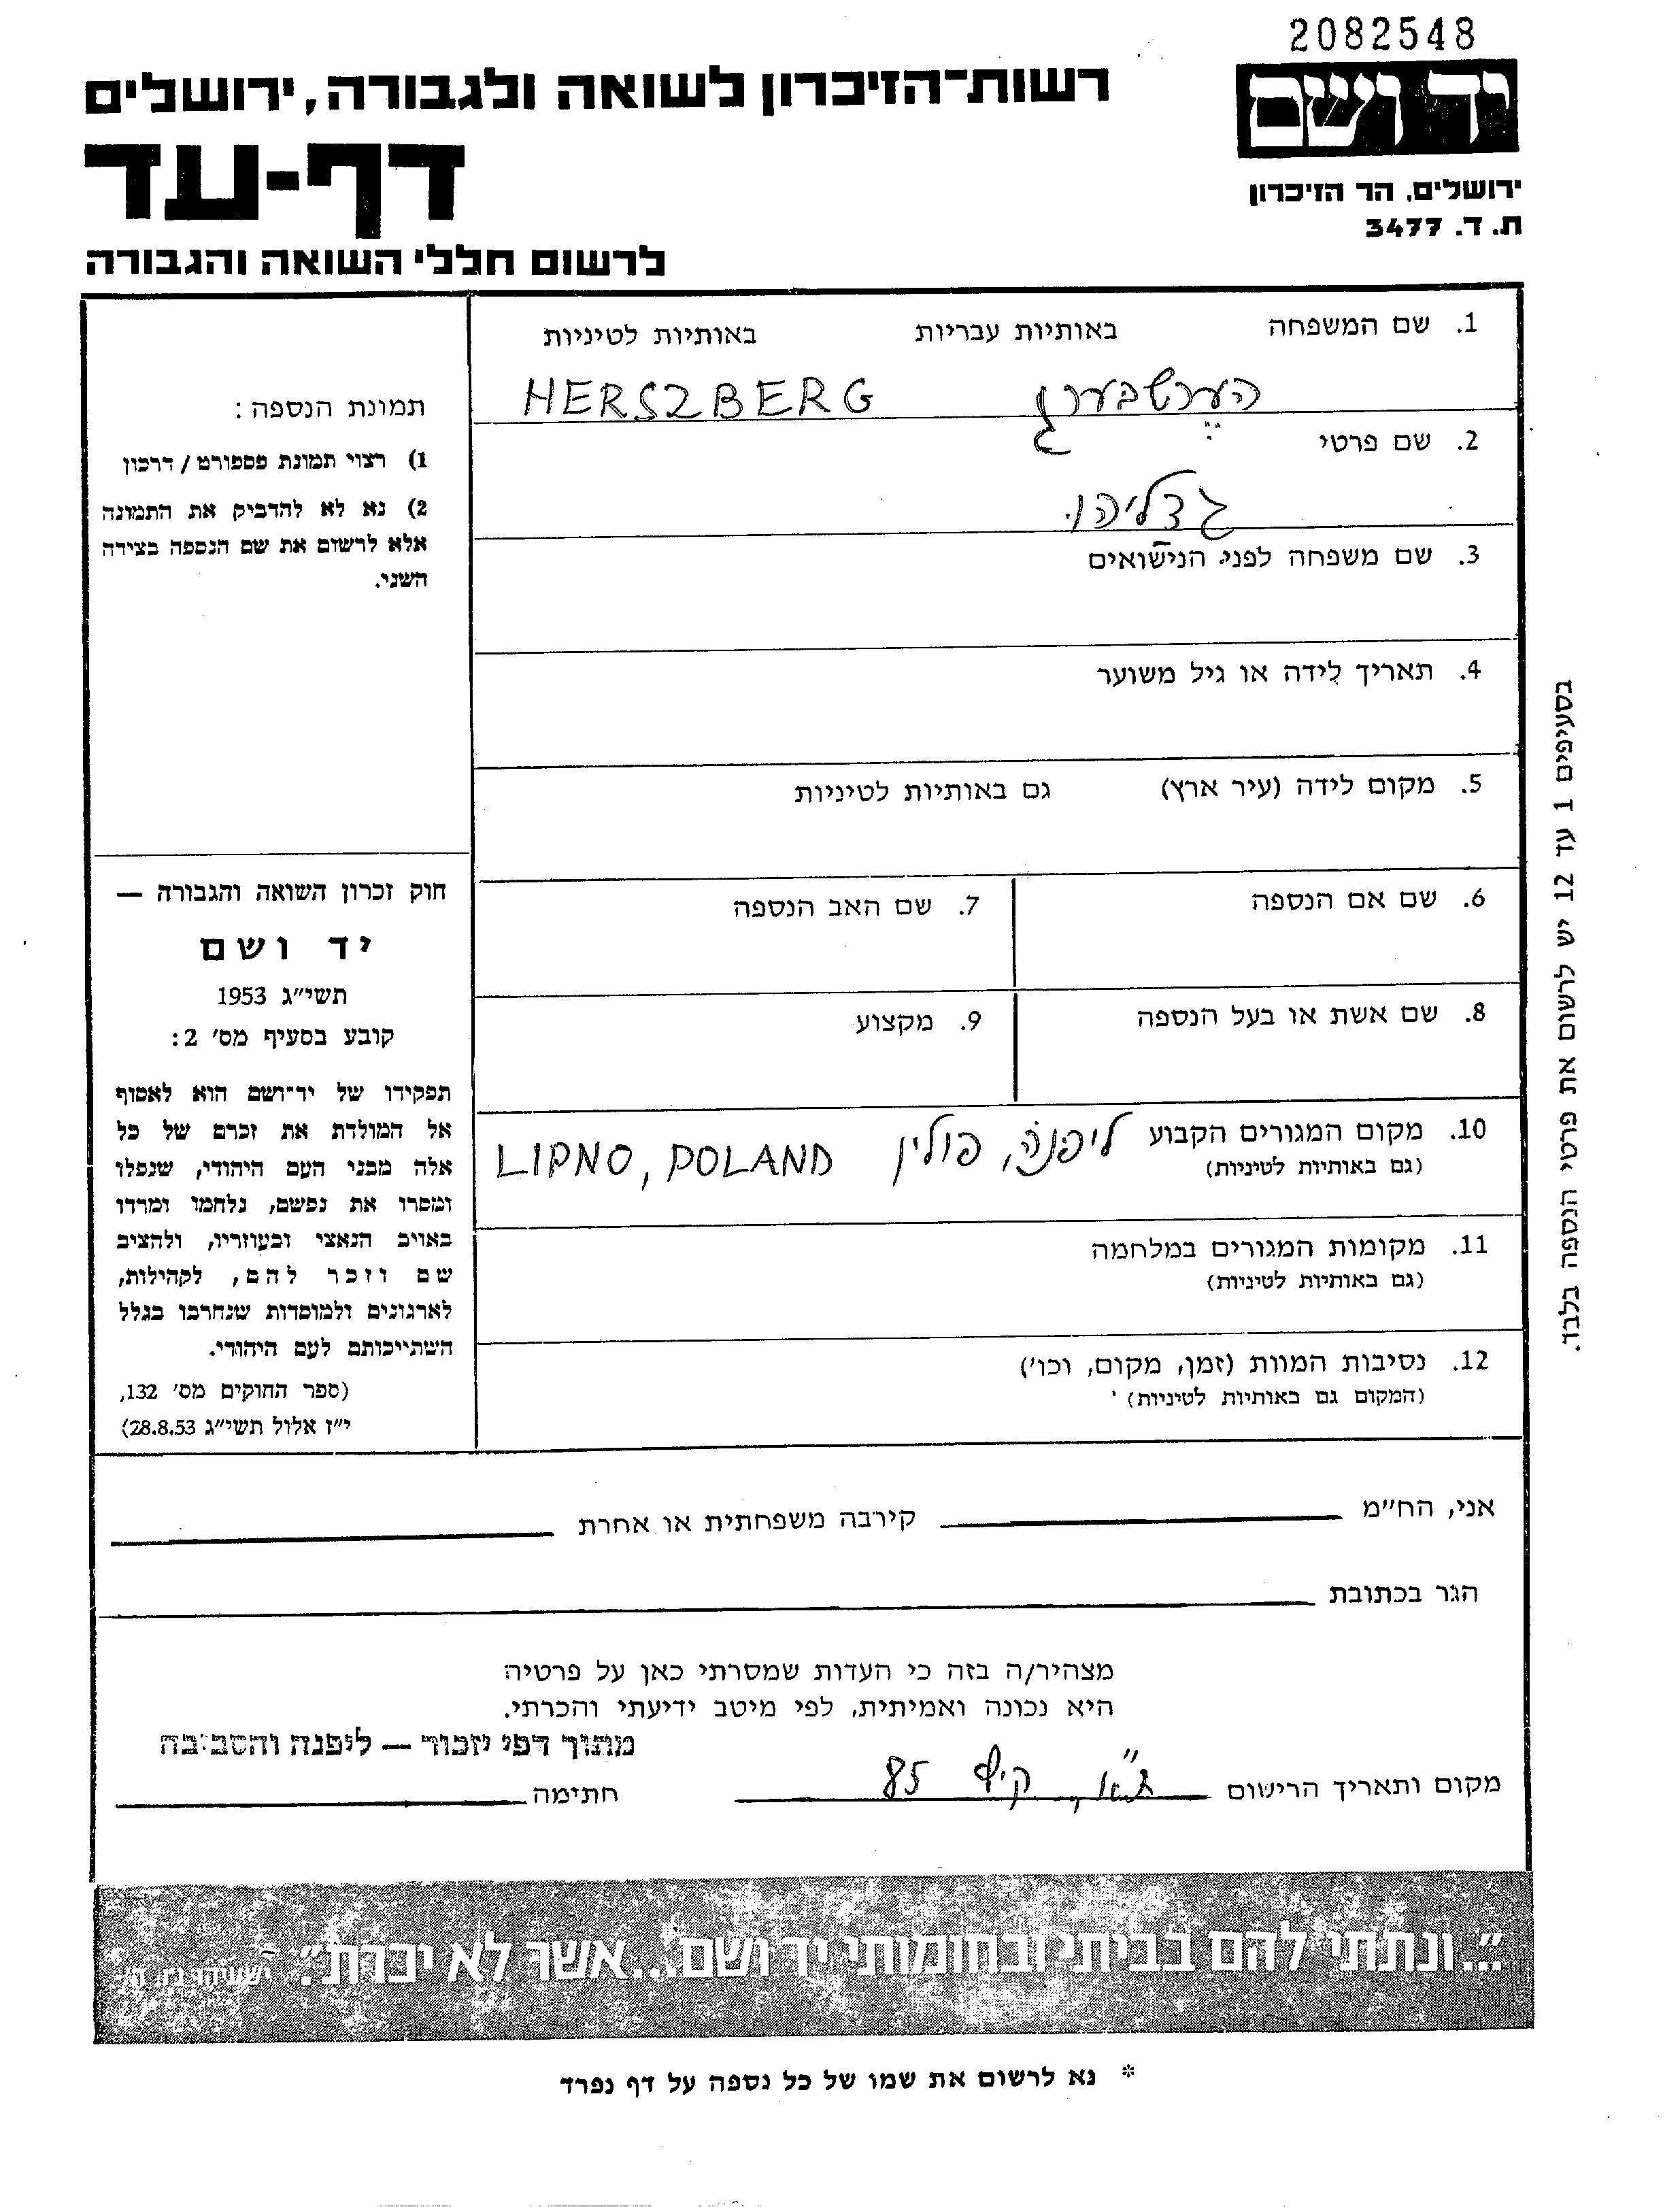 2082548
יד ושם
רשות־הזיכרון לשואה ולגבורה, ירושלים
דף-עד
ירושלים, הר הזיכרון
ת. ד. 3477
לרשום חללי השואה והגבורה
1. שם המשפחה באותיות עבריות באותיות לטיניות
הערשבערג HERSZBERG
2. שם פרטי
גדליהו.
3. שם משפחה לפני הנישואים
4. תאריך לידה או גיל משוער
5. מקום לידה (עיר ארץ) גם באותיות לטיניות
6. שם אם הנספה
7. שם האב הנספה
8. שם אשת או בעל הנספה
9. מקצוע
10. מקום המגורים הקבוע ליפנה, פולין LIPNO, POLAND
(גם באותיות לטיניות)
11. מקומות המגורים במלחמה
(גם באותיות לטיניות)
12. נסיבות המוות (זמן, מקום, וכו')
(המקום גם באותיות לטיניות)
תמונת הנספה:
1) רצוי תמונת פספורט / דרכון
2) נא לא להדביק את התמונה
אלא לרשום את שם הנספה בצידה
השני.
חוק זכרון השואה והגבורה —
יד ושם
תשי״ג 1953
קובע בסעיף מס' 2:
תפקידו של יד־ושם הוא לאסוף
אל המולדת את זכרם של כל
אלה מבני העם היהודי, שנפלו
ומסרו את נפשם, נלחמו ומרדו
באויב הנאצי ובעוזריו, ולהציב
שם וזכר להם, לקהילות,
לארגונים ולמוסדות שנחרבו בגלל
השתייכותם לעם היהודי.
(ספר החוקים מס' 132,
י״ז אלול תשי״ג 28.8.53)
בסעיפים 1 עד 12 יש לרשום את פרטי הנספה בלבד.
אני, הח״מ קירבה משפחתית או אחרת
הגר בכתובת
מצהיר/ה בזה כי העדות שמסרתי כאן על פרטיה
היא נכונה ואמיתית, לפי מיטב ידיעתי והכרתי.
מתוך דפי יזכור — ליפנה והסביבה
מקום ותאריך הרישום ת״א, קיץ 85 חתימה
״...ונתתי להם בביתי ובחומותי יד ושם...אשר לא יכרת״. ישעיהו נו, ה'
* נא לרשום את שמו של כל נספה על דף נפרד